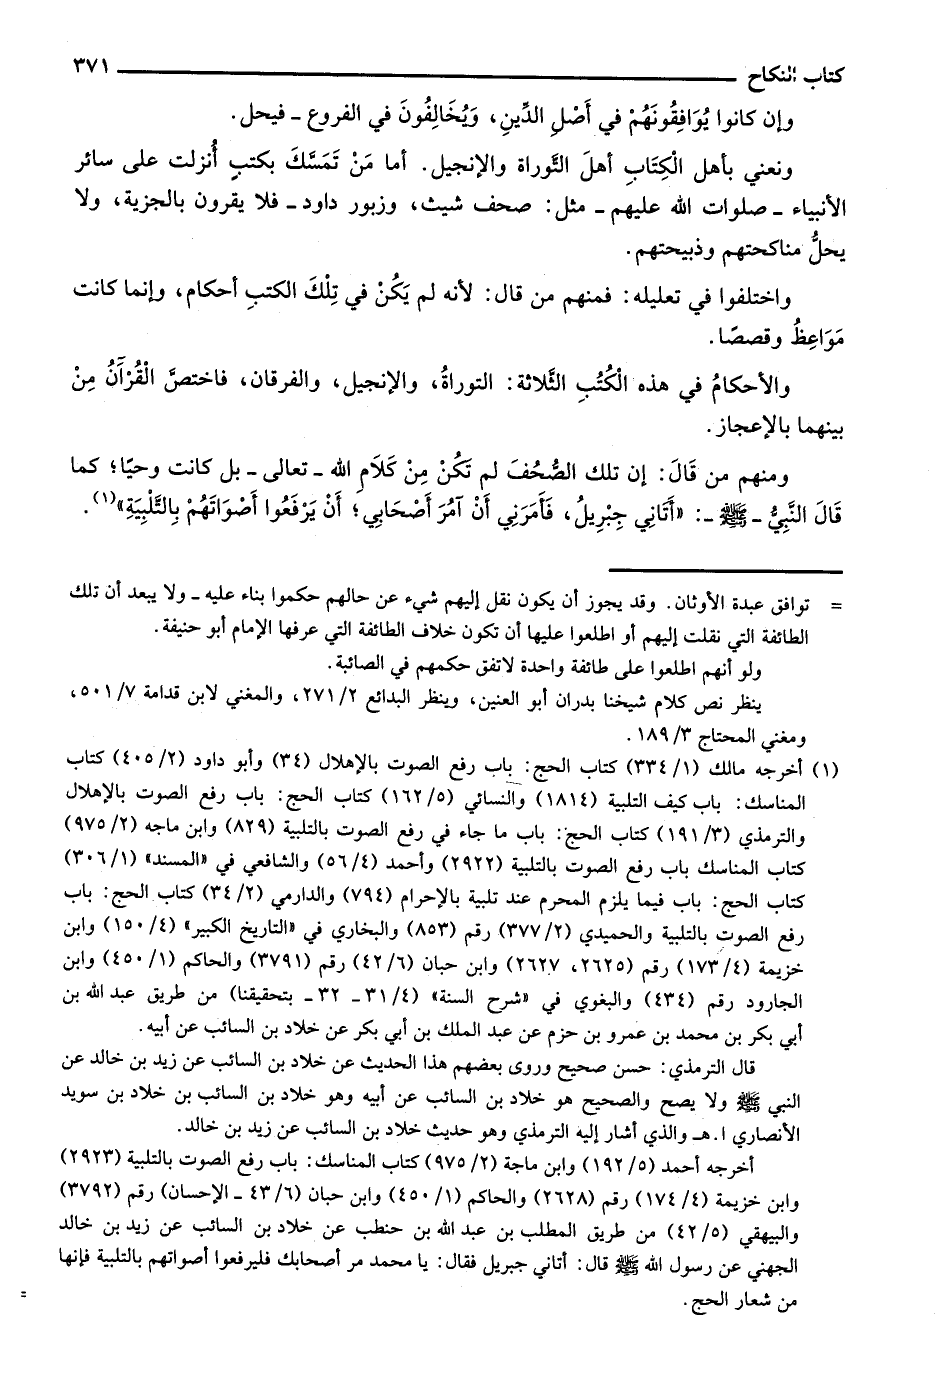 كتاب النكاح ٣٧١
وإن كانوا يُوَافِقُونَهُمْ في أَصْلِ الدِّينِ، وَيُخَالِفُونَ في الفروع ـ فيحل.
ونعني بأهل الْكِتَابِ أهلَ التَّوراة والإنجيل. أما مَنْ تَمَسَّكَ بكتبٍ أُنزلت على سائر
الأنبياء ـ صلوات الله عليهم ـ مثل: صحف شيث، وزبور داود ـ فلا يقرون بالجزية، ولا
يحلُّ مناكحتهم وذبيحتهم.
واختلفوا في تعليله: فمنهم من قال: لأنه لم يَكُنْ في تِلْكَ الكتبِ أحكام، وإنما كانت
مَوَاعِظُ وقصصًا.
والأحكامُ في هذه الْكُتُبِ الثَّلاثة: التوراةُ، والإنجيل، والفرقان، فاختصَّ الْقُرْآنُ مِنْ
بينهما بالإعجاز.
ومنهم من قَالَ: إن تلك الصُّحُفَ لم تَكُنْ مِنْ كَلَامِ الله ـ تعالى ـ بل كانت وحيًا؛ كما
قَالَ النَّبِيُّ ـ ﷺ ـ: «أَتَانِي جِبْرِيلُ، فَأَمَرَنِي أَنْ آمُرَ أَصْحَابِي؛ أَنْ يَرْفَعُوا أَصْوَاتَهُمْ بِالتَّلْبِيَةِ»(١).
= توافق عبدة الأوثان. وقد يجوز أن يكون نقل إليهم شيء عن حالهم حكموا بناء عليه ـ ولا يبعد أن تلك
الطائفة التي نقلت إليهم أو اطلعوا عليها أن تكون خلاف الطائفة التي عرفها الإمام أبو حنيفة.
ولو أنهم اطلعوا على طائفة واحدة لاتفق حكمهم في الصائبة.
ينظر نص كلام شيخنا بدران أبو العنين، وينظر البدائع ٢/ ٢٧١، والمغني لابن قدامة ٧/ ٥٠١،
ومغني المحتاج ٣/ ١٨٩.
(١) أخرجه مالك (١/ ٣٣٤) كتاب الحج: باب رفع الصوت بالإهلال (٣٤) وأبو داود (٢/ ٤٠٥) كتاب
المناسك: باب كيف التلبية (١٨١٤) والنسائي (٥/ ١٦٢) كتاب الحج: باب رفع الصوت بالإهلال
والترمذي (٣/ ١٩١) كتاب الحج: باب ما جاء في رفع الصوت بالتلبية (٨٢٩) وابن ماجه (٢/ ٩٧٥)
كتاب المناسك باب رفع الصوت بالتلبية (٢٩٢٢) وأحمد (٤/ ٥٦) والشافعي في «المسند» (١/ ٣٠٦)
كتاب الحج: باب فيما يلزم المحرم عند تلبية بالإحرام (٧٩٤) والدارمي (٢/ ٣٤) كتاب الحج: باب
رفع الصوت بالتلبية والحميدي (٢/ ٣٧٧) رقم (٨٥٣) والبخاري في «التاريخ الكبير» (٤/ ١٥٠) وابن
خزيمة (٤/ ١٧٣) رقم (٢٦٢٥، ٢٦٢٧) وابن حبان (٦/ ٤٢) رقم (٣٧٩١) والحاكم (١/ ٤٥٠) وابن
الجارود رقم (٤٣٤) والبغوي في «شرح السنة» (٤/ ٣١ ـ ٣٢ ـ بتحقيقنا) من طريق عبد الله بن
أبي بكر بن محمد بن عمرو بن حزم عن عبد الملك بن أبي بكر عن خلاد بن السائب عن أبيه.
قال الترمذي: حسن صحيح وروى بعضهم هذا الحديث عن خلاد بن السائب عن زيد بن خالد عن
النبي ﷺ ولا يصح والصحيح هو خلاد بن السائب عن أبيه وهو خلاد بن السائب بن خلاد بن سويد
الأنصاري ا.هـ والذي أشار إليه الترمذي وهو حديث خلاد بن السائب عن زيد بن خالد.
أخرجه أحمد (٥/ ١٩٢) وابن ماجة (٢/ ٩٧٥) كتاب المناسك: باب رفع الصوت بالتلبية (٢٩٢٣)
وابن خزيمة (٤/ ١٧٤) رقم (٢٦٢٨) والحاكم (١/ ٤٥٠) وابن حبان (٦/ ٤٣ ـ الإحسان) رقم (٣٧٩٢)
والبيهقي (٥/ ٤٢) من طريق المطلب بن عبد الله بن حنطب عن خلاد بن السائب عن زيد بن خالد
الجهني عن رسول الله ﷺ قال: أتاني جبريل فقال: يا محمد مر أصحابك فليرفعوا أصواتهم بالتلبية فإنها
من شعار الحج. =